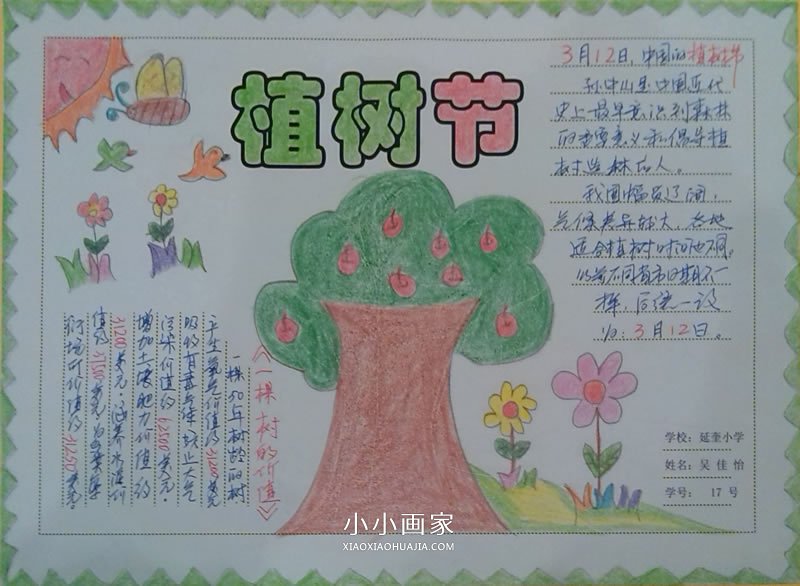 植树节
3月12日,中国的植树节
孙中山是中国近代
史上最早意识到森林
的重要意义和倡导植
树造林的人。
我国幅员辽阔,
气候差异较大,各地
适合植树时间也不同。
以前不同省市日期不一
样,后统一设
为:3月12日。
《一棵树的价值》
一棵50年树龄的树
产生氧气价值约31200美元
吸收有毒气体防止大气
污染价值约62500美元,
增加土壤肥力价值约
31200美元,涵养水源价
值约37500美元
学校:延奎小学
姓名:吴佳怡
学号:17号
小小画家
XIAOXIAOHUAJIA.COM